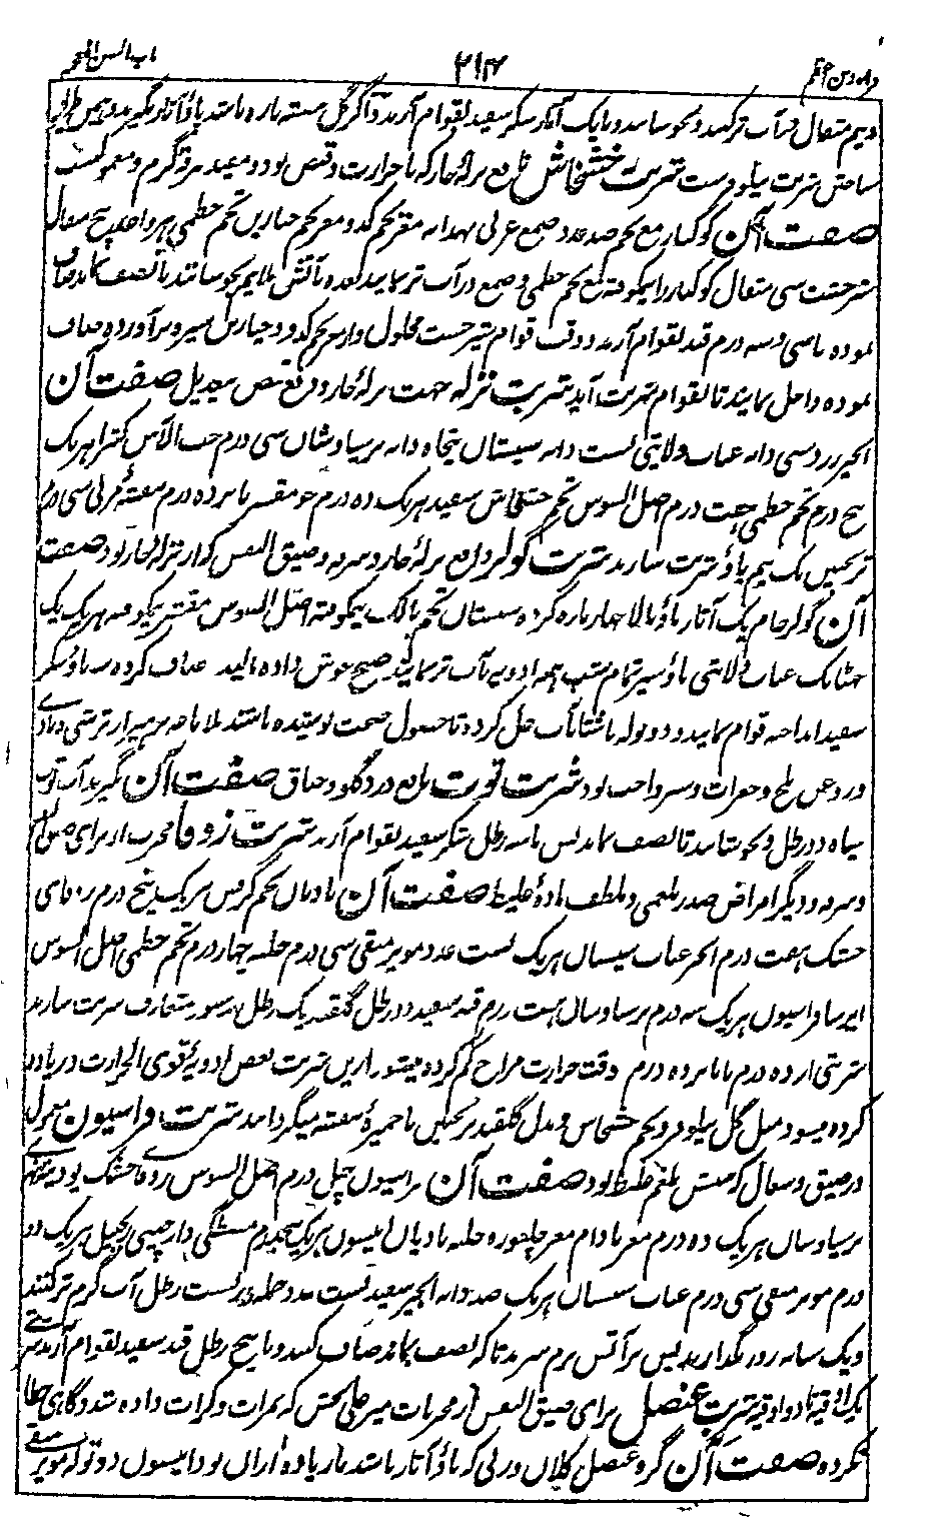 باب السین المعجمه
۲۱۴
و نیم مثقال در آب تر کنند و بجوشانند و با یک آثار شکر سفید بقوام آرند و اگر گل بنفشه تازه باشد پاؤ آثار بگیرند و بهمین طریق
ساختن شربت نیلوفر ست شربت خشخاش نافع برای حار که با حرارت و قبض بود و مفید سرفهٔ گرم و معمول است
صفت آن کوکنار مع تخم صد عدد صمغ عربی بهدانه مغز تخم کدو مغز تخم خیارین تخم خطمی هر واحد پنج مثقال
شیرخشت سی مثقال کوکنار را نیکوفته مع تخم خطمی و صمغ در آب تر نمایند بعده بآتش ملایم بجوشانند تا نصف بماند صاف
نموده باسی و سه درم قند بقوام آرند و وقت قوام شیرخشت محلول و از مغز تخم کدو و خیارین شیره برآورده صاف
نموده داخل نمایند تا بقوام شربت آید شربت نزله جهت نزلهٔ حار و رفع قبض بیعدیل صفت آن
انجیر زرد سی دانه عناب ولایتی بست دانه سپستان پنجاه دانه پرسیاوشان سی درم حب الآس کتیرا هریک
پنج درم تخم خطمی هفت درم اصل السوس تخم خشخاش سفید هریک ده درم جو مقشر پانزده درم بنفشه عربی سی درم
ترنجبین یک نیم پاؤ شربت سازند شربت گولر نافع برای حار و سرفه و ضیق النفس که از نزلهٔ حار بود صفت
آن گولر خام یک آثار پاؤ بالا چهار پاره کرده سپستان تخم پالک نیمکوفته اصل السوس مقشر نیکوفته هریک یک
چٹانک عناب ولایتی پاؤ سیر تمام شب همه ادویه بآب تر نمایند صبح جوش داده مالیده صاف کرده سه پاؤ شکر
سفید انداخته قوام نمایند و دو توله ناشتا بآب حل کرده تا حصول صحت نوشیده باشند بلا ناغه پرهیز از ترشی و بادی
و روغن تلخ و بقولات و سرد واجب بود شربت توت نافع درد گلو و خناق صفت آن بگیرند آب توت
سیاه دو رطل و بجوشانند تا نصف بماند پس با سه رطل شکر سفید بقوام آرند شربت زوفا مجرب از برای ضیق النفس
و سرفه و دیگر امراض صدر بلغمی و ملطف مادهٔ غلیظ صفت آن بادیان تخم کرفس هریک پنج درم زوفای
خشک هفت درم انجیر عناب سپستان هریک بست عدد مویز منقی سی درم حلبه چهار درم تخم خطمی اصل السوس
ایرسا فراسیون هریک سه درم پرسیاوشان هشت درم قند سفید دو رطل گلقند یک رطل بدستور متعارف شربت سازند
شربتی از ده درم تا پانزده درم وقت حرارت مزاج کم کرده میشود ازین شربت بعض ادویهٔ قوی الحرارت و زیاده
کرده میشود مثل گل نیلوفر و تخم خشخاش و بدل گلقند ترنجبین یا خمیرهٔ بنفشه میگردانند شربت فراسیون معمول
در ضیق و سعال که سببش بلغم غلیظ بود صفت آن فراسیون چهل درم اصل السوس زوفا خشک پودینه نهری
پرسیاوشان هریک ده درم مغز بادام مغز چلغوزه حلبه بادیان انیسون هریک پنج درم مصطگی دارچینی زنجبیل هریک دو
درم مویز منقی سی درم عناب سپستان هریک صد دانه انجیر سفید بست عدد جمله در بست رطل آب گرم تر کنند
و یک شبانه روز بگذارند پس بر آتش نرم پزند تا که نصف بماند صاف کنند و با پنج رطل قند سفید بقوام آرند شربتی
یک اوقیه تا دو اوقیه شربت عنصل برای ضیق النفس از مجربات میر علی بخش که بمرات و کرات داده شد و گاهی خطا
نکرده صفت آن گره عنصل کلان وزنی که پاؤ آثار باشد یا زیاده ازان بود انیسون دو توله مویز منقی